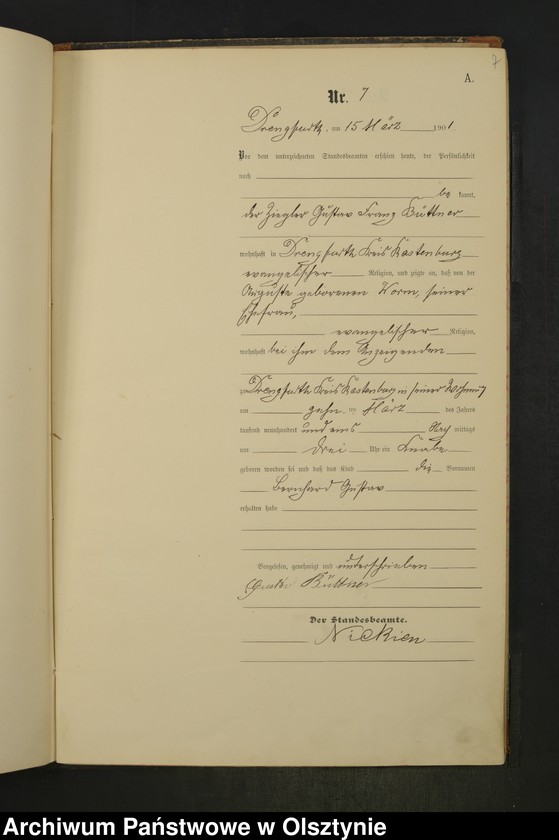 7
A.
Nr. 7
Drengfurth, am 15 März 1901.
Vor dem unterzeichneten Standesbeamten erschien heute, der Persönlichkeit
nach
be kannt,
der Ziegler Gustav Franz Büttner
wohnhaft in Drengfurth Kreis Rastenburg
evangelischer Religion, und zeigte an, daß von der
Auguste geborenen Worm, seiner
Ehefrau,
evangelischer Religion,
wohnhaft bei ihm dem Anzeigenden
zu Drengfurth Kreis Rastenburg in seiner Wohnung
am zehn ten März des Jahres
tausend neunhundert und eins Nach mittags
um drei Uhr ein Knabe
geboren worden sei und daß das Kind die Vornamen
Bernhard Gustav
erhalten habe
Vorgelesen, genehmigt und unterschrieben
Gustav Büttner
Der Standesbeamte.
Nickien
Archiwum Państwowe w Olsztynie